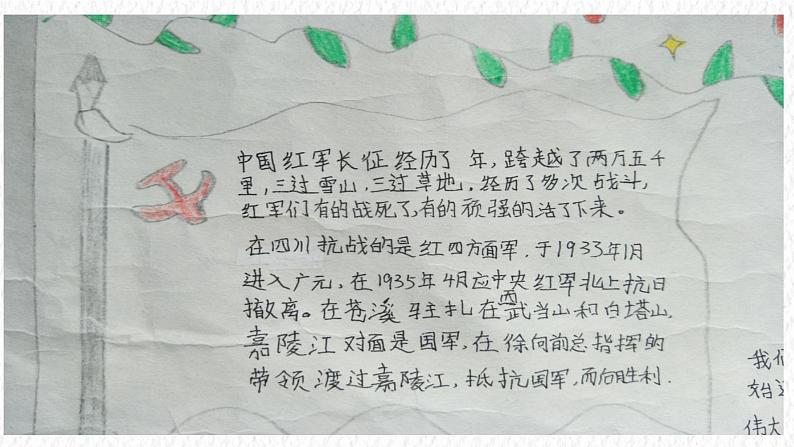 中国红军长征经历了 年，跨越了两万五千
里，三过雪山，三过草地，经历了多次战斗，
红军们有的战死了，有的顽强的活了下来。
在四川抗战的是红四方面军，于1933年1月
进入广元，在1935年4月应中央红军北上抗日
撤离。在苍溪驻扎在西武当山和白塔山，
嘉陵江对面是国军，在徐向前总指挥的
带领渡过嘉陵江，抵抗国军，而向胜利.
我们
始
伟大